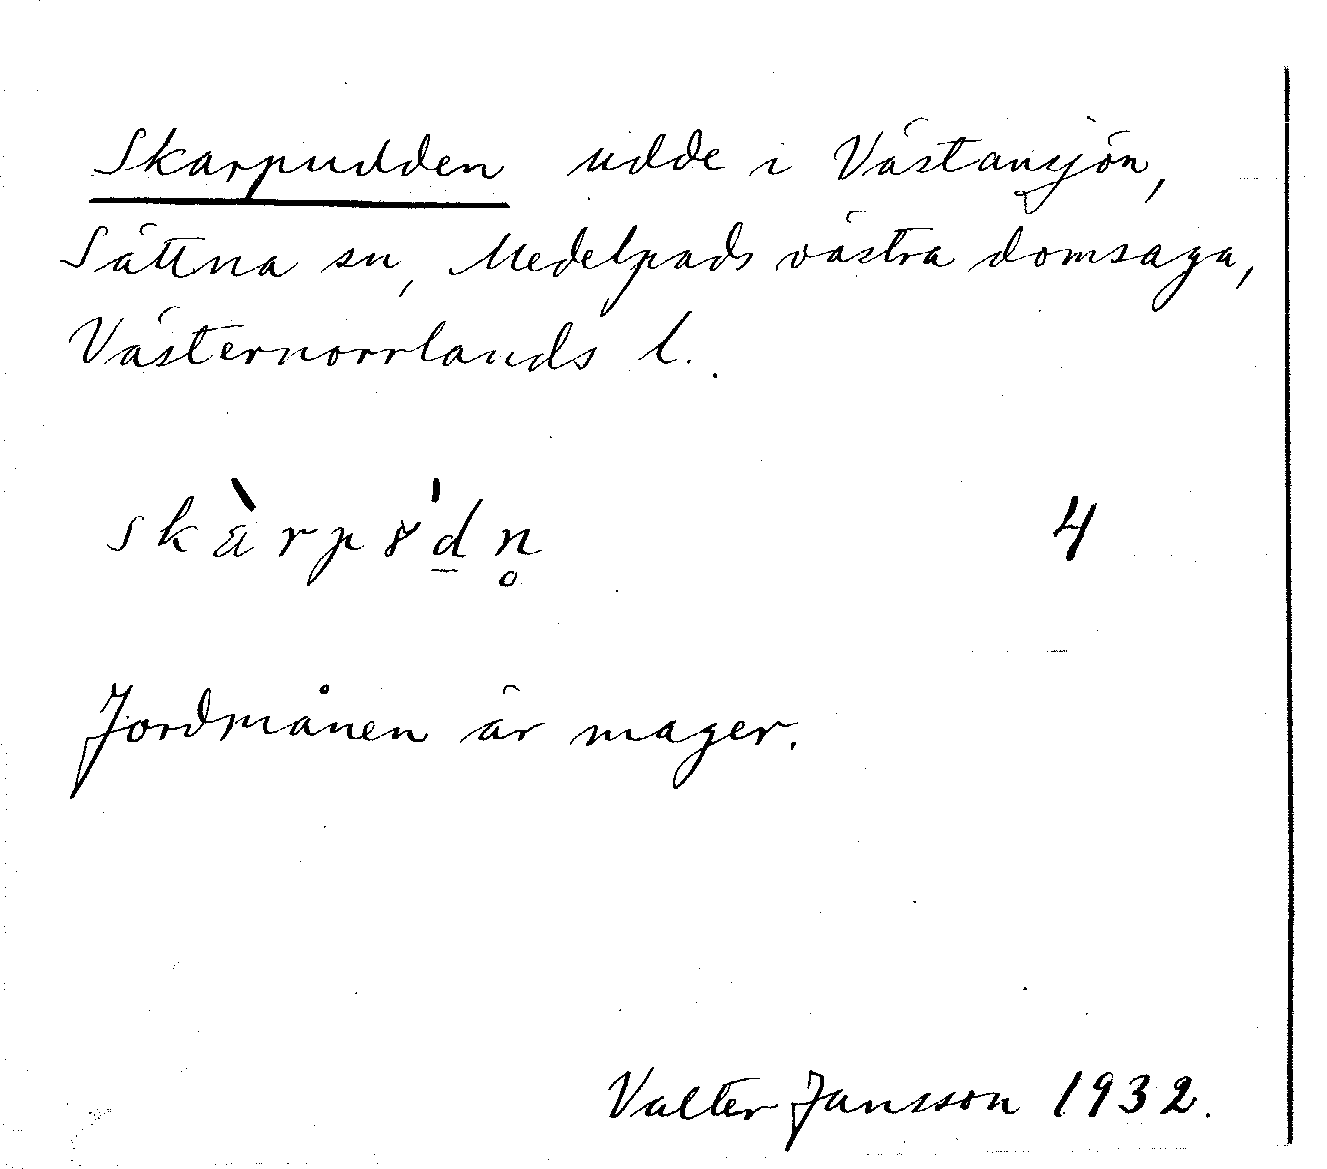 Skarpudden udde i Västansjön,
Sättna sn, Medelpads västra domsaga,
Västernorrlands l.
skàrp8̍d̲n̥ 4
Jordmånen är mager.
Valter Jansson 1932.